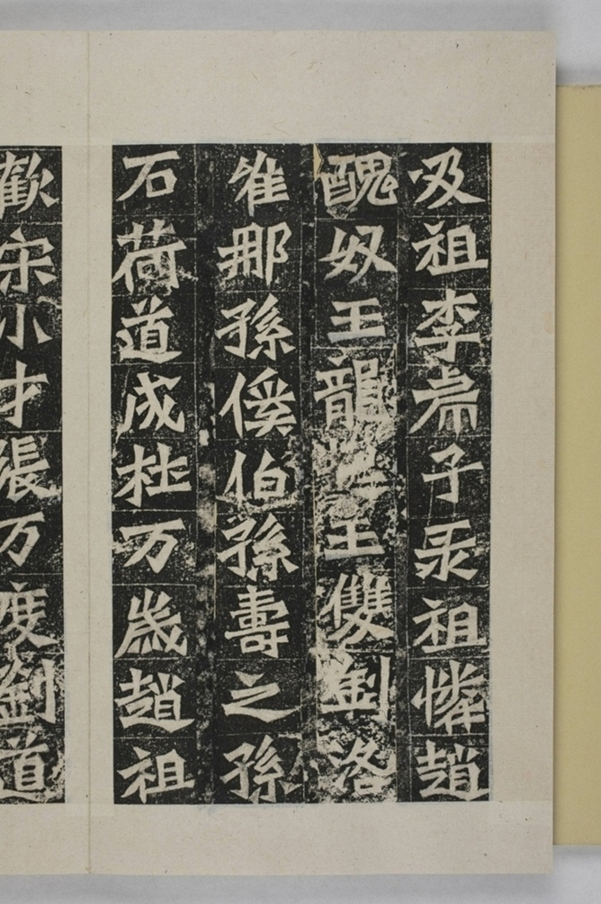 祖李子祖憐趙
醜奴王龍王雙劉洛
唯那孫俟伯孫壽之孫
石荷道成杜万歲趙祖
歡宋小才張万度劉道